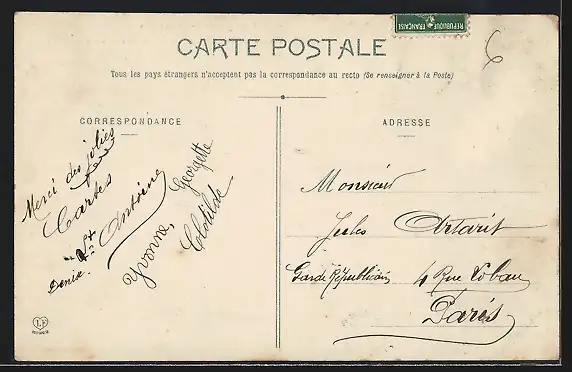 REPUBLIQUE
FRANÇAISE
6
CARTE POSTALE
Tous les pays étrangers n'acceptent pas la correspondance au recto (Se renseigner à la Poste)
CORRESPONDANCE
ADRESSE
Merci des jolies
Cartes
St Antoine
Denise.
Yvonne, Georgette
Clotilde
Monsieur
Jules Artarit
Garde Républicain 4 Rue Voban
Paris
LF